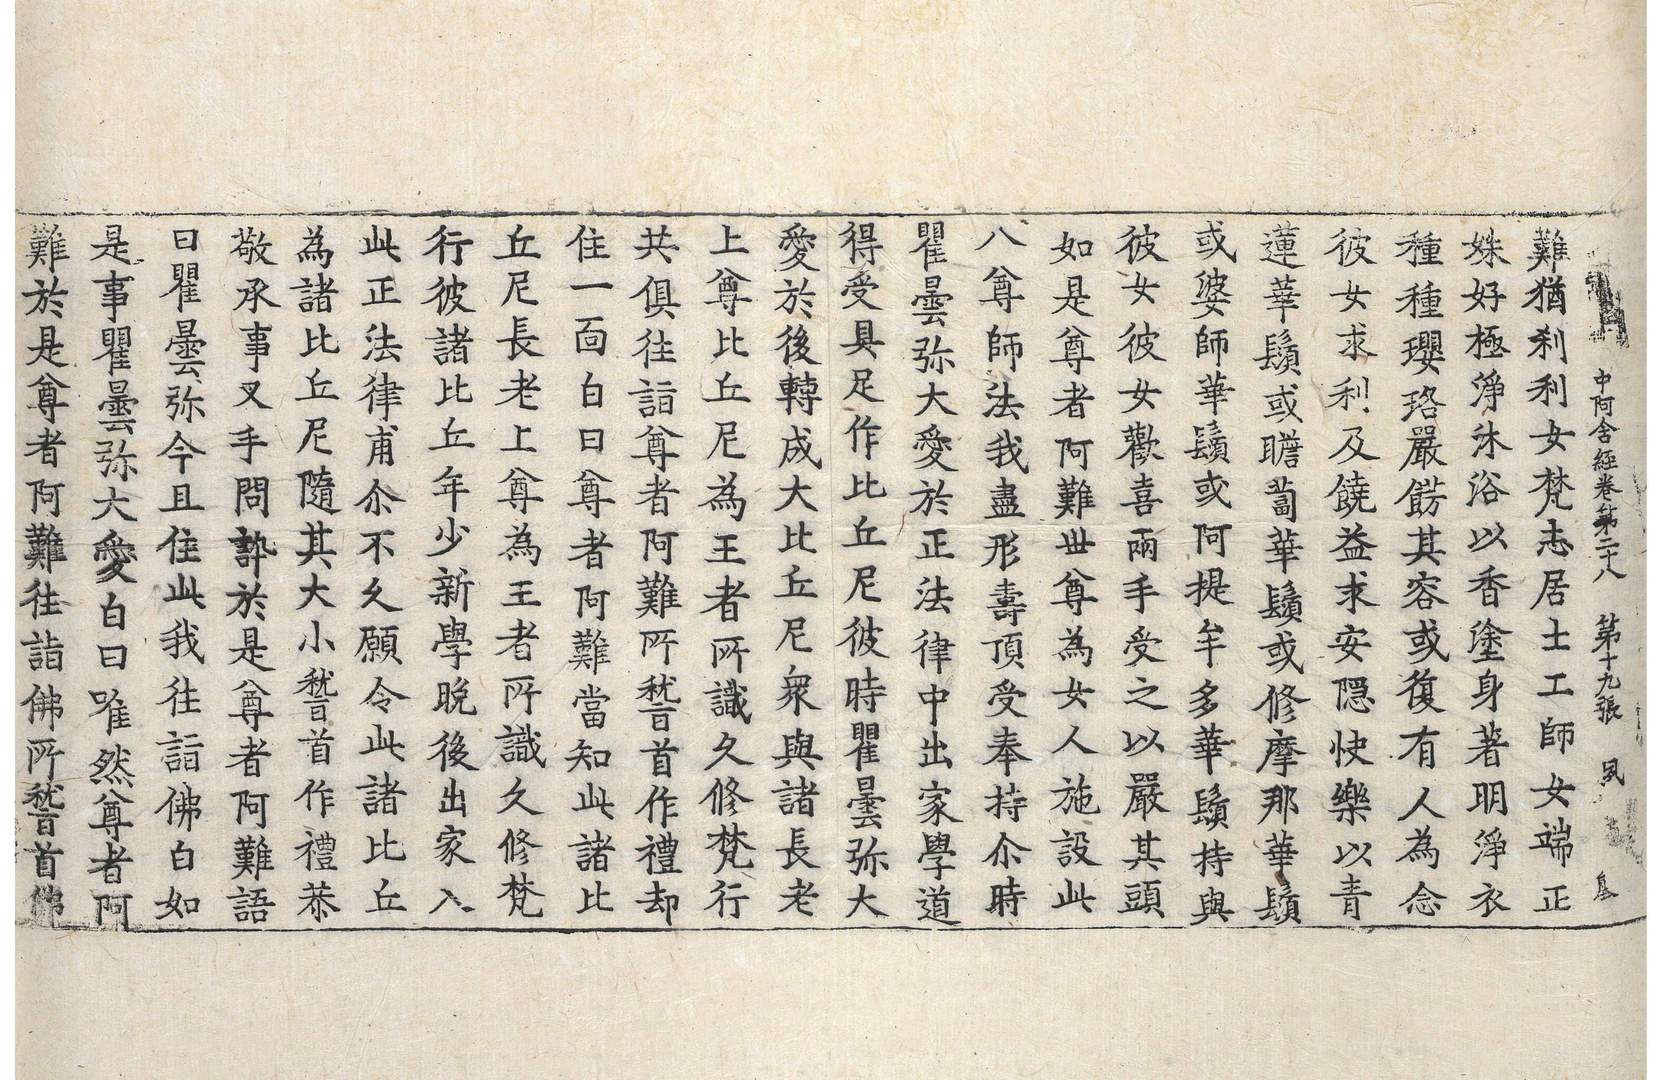 中阿含經卷第二十八 第十九張 夙
難猶刹利女梵志居士工師女端正
姝好極淨沐浴以香塗身著明淨衣
種種瓔珞嚴餝其容或復有人為念
彼女求利及饒益求安隱快樂以青
蓮華鬚或瞻蔔華鬚或修摩那華鬚
或婆師華鬚或阿提牟多華鬚持與
彼女彼女歡喜兩手受之以嚴其頭
如是尊者阿難世尊為女人施設此
八尊師法我盡形壽頂受奉持尒時
瞿曇弥大愛於正法律中出家學道
得受具足作比丘尼彼時瞿曇弥大
愛於後轉成大比丘尼衆與諸長老
上尊比丘尼為王者所識久修梵行
共俱往詣尊者阿難所嵆首作禮却
住一靣白曰尊者阿難當知此諸比
丘尼長老上尊為王者所識久修梵
行彼諸比丘年少新學晚後出家入
此正法律甫尒不久願令此諸比丘
為諸比丘尼隨其大小嵆首作禮恭
敬承事叉手問訊於是尊者阿難語
曰瞿曇弥今且住此我往詣佛白如
是事瞿曇弥大愛白曰唯然尊者阿
難於是尊者阿難往詣佛所嵆首佛